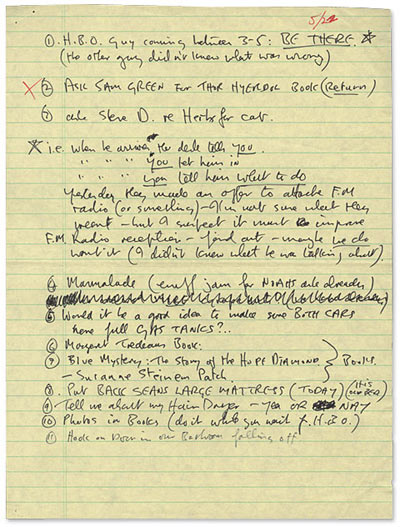 5/22
① H.B.O. Guy coming between 3-5: BE THERE. *
(the other guy didn't know what was wrong)
X ② ASK SAM GREEN FOR THOR HYERDOL BOOK (Return)
③ ask Steve D. re Herbs for cat.
* i.e. when he arrives the desk tells YOU.
" " " " YOU let him in
" " " " YOU tell him what to do
Yesterday they made an offer to attach F.M
radio (or something) - I'm not sure what they
meant - but I suspect it must improve
F.M. Radio reception - find out - maybe we do
want it (I didn't know what he was talking about).
④ Marmalade (enuff jam for NOAHS ark already)
⑤ Would it be a good idea to make sure BOTH CARS
have full GAS TANKS?..
⑥ Margaret Trudeau Book:
⑦ Blue Mystery: The Story of the HOPE DIAMOND } Books.
- Susanne Steinem Patch.
⑧ Put BACK SEANS LARGE MATTRESS (TODAY) (its under)
⑨ Tell me about my Hair Dryer - YEA OR NAY
⑩ Photos in Books (do it while you wait f. H.B.O.)
⑪ Hook on Door in our Bathroom falling off